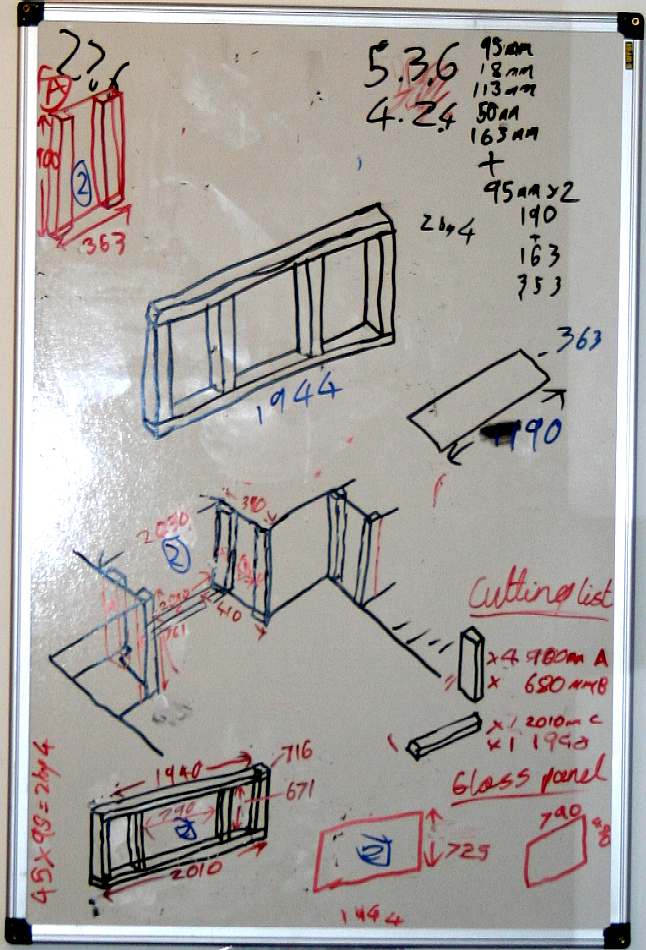 22
A
2
363
5.3.6
4.24
95mm
18mm
113mm
50mm
163mm
+
95mm x2
190
+
163
353
2by4
1944
363
1190
380
2030
2
410
761
Cutting list
x4 980mm A
x 680mm B
x1 2010m C
x1 1940
716
1940
671
790
2
2010
45x95=2by4
Glass panel
2
725
1944
790